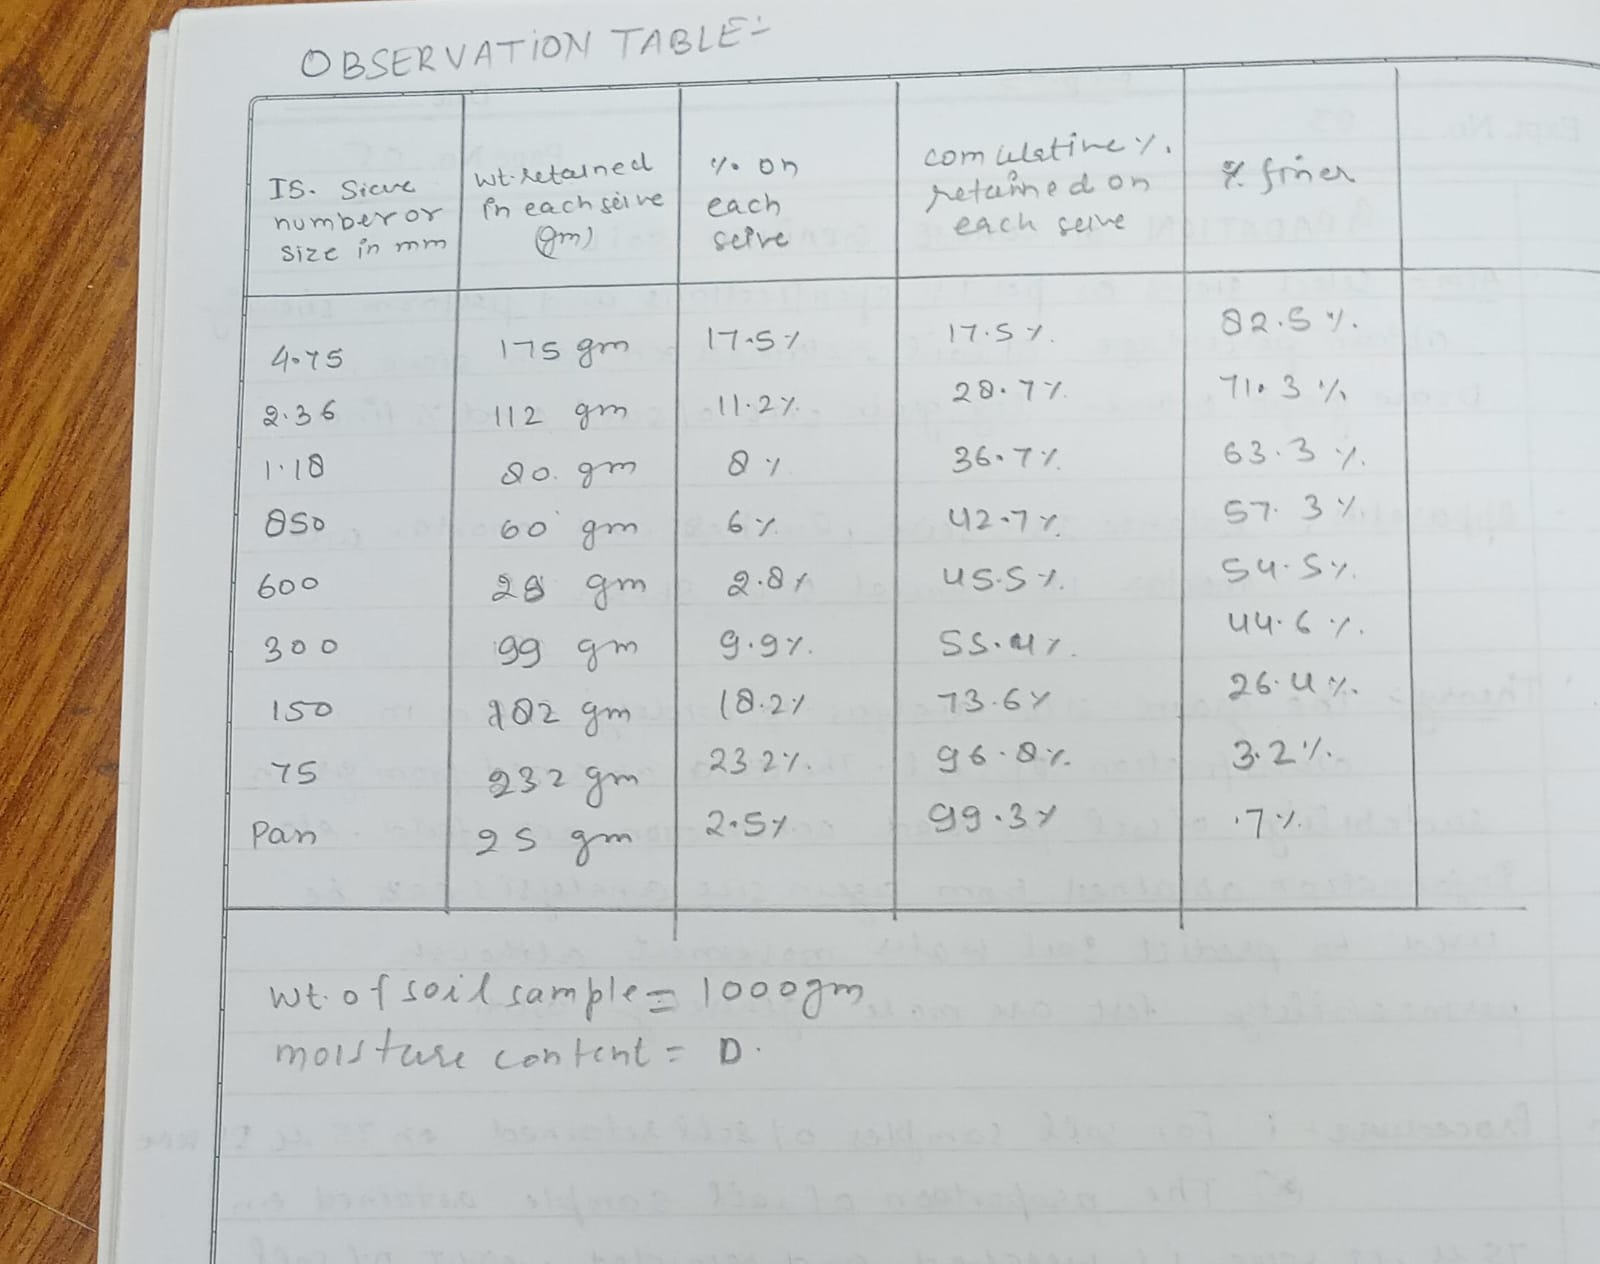 OBSERVATION TABLE:-
IS. Sieve number or size in mm | wt. retained in each seive (gm) | % on each seive | comulative % retained on each seive | % finer
4.75 | 175 gm | 17.5% | 17.5% | 82.5%
2.36 | 112 gm | 11.2% | 28.7% | 71.3%
1.18 | 80 gm | 8% | 36.7% | 63.3%
850 | 60 gm | 6% | 42.7% | 57.3%
600 | 28 gm | 2.8% | 45.5% | 54.5%
300 | 99 gm | 9.9% | 55.4% | 44.6%
150 | 182 gm | 18.2% | 73.6% | 26.4%
75 | 232 gm | 23.2% | 96.8% | 3.2%
Pan | 25 gm | 2.5% | 99.3% | .7%
wt. of soil sample = 1000gm
moisture content = D.